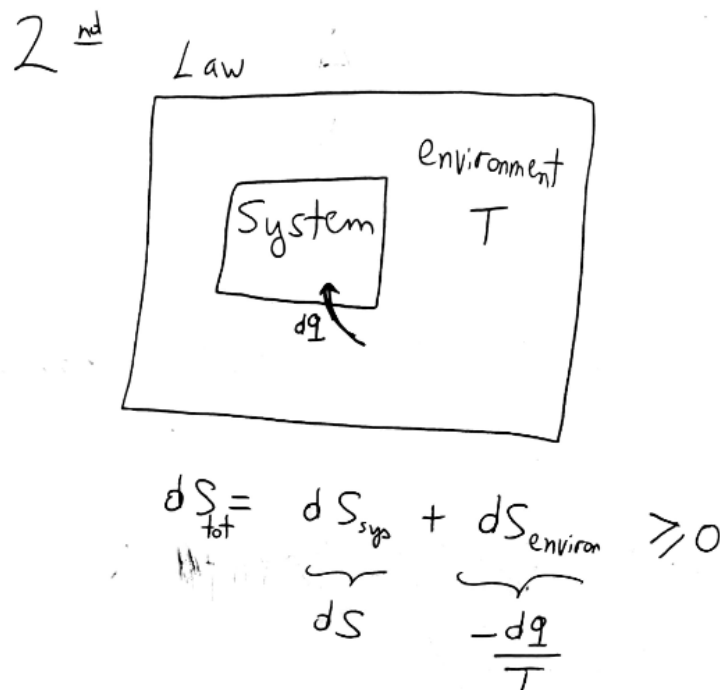 2 nd
Law
environment
System
T
dq
dS_tot = dS_sys + dS_environ ≥ 0
dS
-dq
T